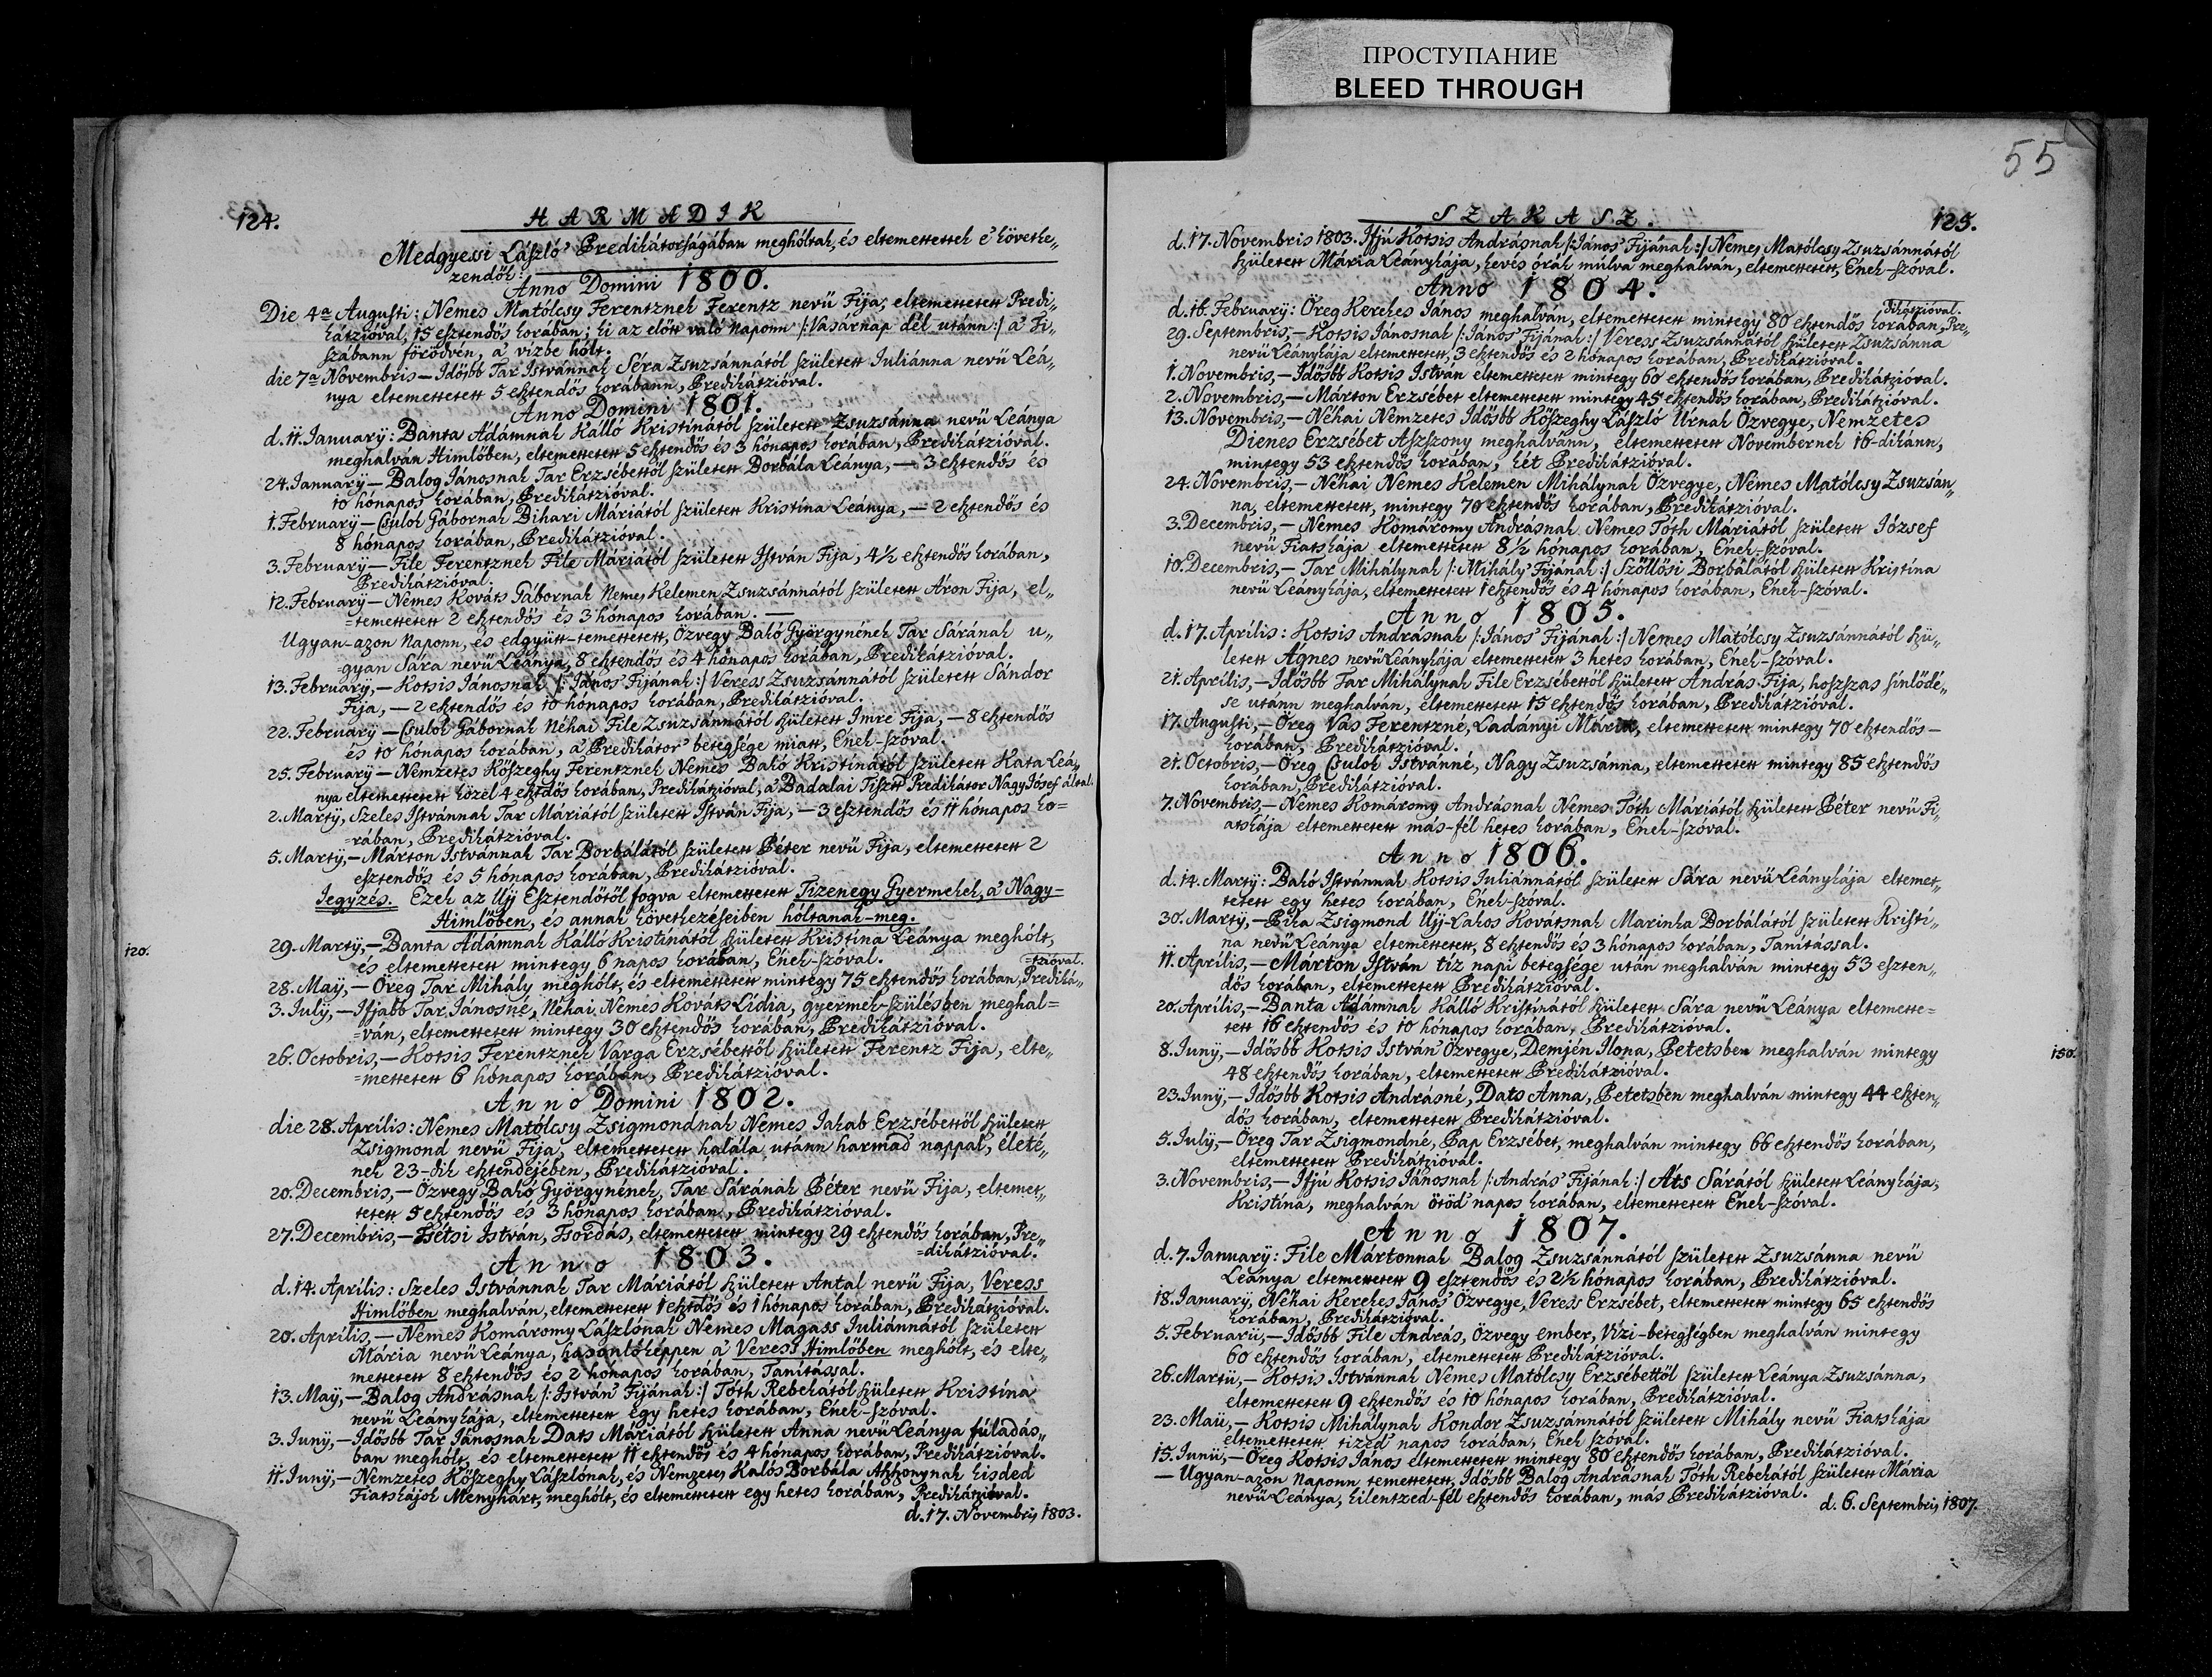 ПРОСТУПАНИЕ
BLEED THROUGH
55
124.
HARMADIK
Medgyessi László' Predikátorságában meghóltak, és eltemettettek e' követke„
zendők:
Anno Domini 1800.
Die 4a Augusti: Nemes Matólcsy Ferentznek Ferentz nevű Fija, eltemettetett Predi„
kátzióval, 15 esztendős korában; ki az előtt való naponn /:Vasárnap dél utánn:/ a' Ti„
szábann förödvén, a' vízbe hólt.
die 7a Novembris – Idősbb Tar Istvánnak Séra Zsuzsánnától született Juliánna nevű Leá„
nya eltemettetett 5 esztendős korábann, Predikátzióval.
Anno Domini 1801.
d. 11. January: Banta Ádámnak Kálló Kristinától született Zsuzsánna nevű Leánya
meghalván Himlőben, eltemettetett 5 esztendős és 3 hónapos korában, Predikátzióval.
24. January – Balog Jánosnak Tar Erzsébettől született Borbála Leánya, – 3 esztendős és
10 hónapos korában, Predikátzióval.
1. February – Csulok Gábornak Bihari Máriától született Kristína Leánya, – 2 esztendős és
8 hónapos korában, Predikátzióval.
3. February – File Ferentznek File Máriától született István Fija, 4½ esztendős korában,
Predikátzióval.
12. February – Nemes Kováts Gábornak Nemes Kelemen Zsuzsánnától született Áron Fija, el„
=temettetett 2 esztendős és 3 hónapos korában. –
Ugyan-azon Naponn, és edgyütt-temettetett, Özvegy Bakó Györgynének Tar Sárának u„
gyan Sára nevű Leánya, 8 esztendős és 4 hónapos korában, Predikátzióval.
13. February, – Kotsis Jánosnak /:János' Fijának:/ Veress Zsuzsannától született Sándor
Fija, – 2 esztendős és 10 hónapos korában, Predikátzióval.
22. February – Csulok Gábornak Néhai File Zsuzsánnától született Imre Fija, – 8 esztendős
és 10 hónapos korában, a' Predikátor' betegsége miatt, Ének-szóval.
25. February – Nemzetes Kőszeghy Ferentznek Nemes Bakó Kristinától született Kata Leá„
nya eltemettetett közel 4 esztdős korában, Predikátzióval, a' Badalai Tiszt. Predikátor Nagy Jósef által.
2. Marty, Szeles Istvánnak Tar Máriától született István Fija, – 3 esztendős és 11 hónapos ko=
=rában, Predikátzióval.
5. Marty, – Márton Istvánnak Tar Borbálától született Péter nevű Fija, eltemettetett 2
esztendős és 5 hónapos korában, Predikátzióval.
Jegyzés. Ezek az Uj Esztendőtől fogva eltemettetett Tizenegy Gyermekek, a' Nagy=
Himlőben, és annak következéseiben hóltanak-meg.
120.
29. Marty, – Banta Ádámnak Kálló Kristinától született Kristína Leánya meghólt,
és eltemettetett mintegy 6 napos korában, Ének-szóval.
28. May, – Öreg Tar Mihály meghólt, és eltemettetett mintegy 75 esztendős korában, Prediká„
=tzióval.
3. July, – Ifjabb Tar Jánosné, Néhai Nemes Kováts Lidia, gyermek-szülésben meghal=
=ván, eltemettetett mintegy 30 esztendős korában, Predikátzióval.
26. Octobris, – Kotsis Ferentznek Varga Erzsébettől született Ferentz Fija, elte„
=mettetett 6 hónapos korában, Predikátzióval.
Anno Domini 1802.
die 28. Aprílis: Nemes Matólcsy Zsigmondnak Nemes Jakab Erzsébettől született
Zsigmond nevű Fija, eltemettetett halála utánn harmad nappal, életé„
nek 23-dik esztendejében, Predikátzióval.
20. Decembris, – Özvegy Bakó Györgynének, Tar Sárának Péter nevű Fija, eltemet„
tetett 5 esztendős és 3 hónapos korában, Predikátzióval.
27. Decembris, – Hétsi István, Tsordás, eltemettetett mintegy 29 esztendős korában, Pre„
=dikátzióval.
Anno 1803.
d. 14. Aprílis: Szeles Istvánnak Tar Máriától született Antal nevű Fija, Veress
Himlőben meghalván, eltemettetett 1 esztdős és 1 hónapos korában, Predikátzióval.
20. Aprílis, – Nemes Komáromy Lászlónak Nemes Magass Juliánnától született
Mária nevű Leánya, hasonlóképpen a' Veress Himlőben meghólt, és elte„
mettetett 8 esztendős és 2 hónapos korában, Tanítással.
13. May, – Balog Andrásnak /:István' Fijának:/ Tóth Rebekától született Kristína
nevű Leánykája, eltemettetett egy hetes korában, Ének-szóval.
3. Juny, – Idősbb Tar Jánosnak Dats Máriától született Anna nevű Leánya fúladás„
ban meghólt, és eltemettetett 11 esztendős és 4 hónapos korában, Predikátzióval.
11. Juny, – Nemzetes Kőszeghy Lászlónak, és Nemzetes Kalós Borbála Aszszonynak kisded
Fiatskájok Menyhárt, meghólt, és eltemettetett egy hetes korában, Predikátzióval.
d. 17. Novembris 1803.
SZAKASZ.
125.
d. 17. Novembris 1803. Ifjú Kotsis Andrásnak /:János' Fijának:/ Nemes Matólcsy Zsuzsánnától
született Mária Leánykája, kevés órák múlva meghalván, eltemettetett, Ének-szóval.
Anno 1804.
d. 16. February: Öreg Kerekes János meghalván, eltemettetett mintegy 80 esztendős korában, Pre„
dikátzióval.
29. Septembris, – Kotsis Jánosnak /:János' Fijának:/ Veress Zsuzsánnától született Zsuzsánna
nevű Leánykája eltemettetett, 3 esztendős és 2 hónapos korában, Predikátzióval.
1. Novembris, – Idősbb Kotsis István eltemettetett mintegy 60 esztendős korában, Predikátzióval.
2. Novembris, – Márton Erzsébet eltemettetett mintegy 45 esztendős korában, Predikátzióval.
13. Novembris, – Néhai Nemzetes Idősbb Kőszeghy László Úrnak Özvegye, Nemzetes
Dienes Erzsébet Aszszony meghalvánn, eltemettetett Novembernek 16-dikánn,
mintegy 53 esztendős korában, két Predikátzióval.
24. Novembris, – Néhai Nemes Kelemen Mihálynak Özvegye, Nemes Matólcsy Zsuzsán„
na, eltemettetett, mintegy 70 esztendős korában, Predikátzióval.
3. Decembris, – Nemes Komáromy Andrásnak Nemes Tóth Máriától született Jósef
nevű Fiatskája eltemettetett 8½ hónapos korában, Ének-szóval.
10. Decembris, – Tar Mihálynak /:Mihály' Fijának:/ Szőllősi Borbálától született Kristína
nevű Leánykája, eltemettetett 1 esztendős és 4 hónapos korában, Ének-szóval.
Anno 1805.
d. 17. Aprílis: Kotsis Andrásnak /:János' Fijának:/ Nemes Matólcsy Zsuzsánnától szü„
letett Ágnes nevű Leánykája eltemettetett 3 hetes korában, Ének-szóval.
21. Aprílis, – Idősbb Tar Mihálynak File Erzsébettől született András Fija, hoszszas sínlődé„
se utánn meghalván, eltemettetett 15 esztendős korában, Predikátzióval.
17. Augusti, – Öreg Vas Ferentzné, Ladányi Mária, eltemettetett mintegy 70 esztendős –
korában, Predikátzióval.
21. Octobris, – Öreg Csulok Istvánné, Nagy Zsuzsánna, eltemettetett mintegy 85 esztendős
korában, Predikátzióval.
7. Novembris, – Nemes Komáromy Andrásnak Nemes Tóth Máriától született Péter nevű Fi„
atskája eltemettetett más-fél hetes korában, Ének-szóval.
Anno 1806.
d. 14. Marty: Bakó Istvánnak Kotsis Juliánnától született Sára nevű Leánykája eltemet„
tetett egy hetes korában, Ének-szóval.
30. Marty, – Pika Zsigmond Uj-Lakos Kovátsnak Marinka Borbálától született Kristí„
na nevű Leánya eltemettetett, 8 esztendős és 3 hónapos korában, Tanítással.
11. Aprílis, – Márton István tíz napi betegsége után meghalván mintegy 53 eszten„
dős korában, eltemettetett Predikátzióval.
20. Aprílis, – Banta Ádámnak Kálló Kristinától született Sára nevű Leánya eltemette=
tett 16 esztendős és 10 hónapos korában, Predikátzióval.
8. Juny, – Idősbb Kotsis István' Özvegye, Demjén Ilona, Petetsben meghalván mintegy
150.
48 esztendős korában, eltemettetett Predikátzióval.
23. Juny, – Idősbb Kotsis Andrásné, Dats Anna, Petetsben meghalván mintegy 44 eszten„
dős korában, eltemettetett Predikátzióval.
5. July, – Öreg Tar Zsigmondné, Pap Erzsébet, meghalván mintegy 66 esztendős korában,
eltemettetett Predikátzióval.
3. Novembris, – Ifjú Kotsis Jánosnak /:András' Fijának:/ Áts Sárától született Leánykája,
Kristína, meghalván ötöd napos korában, eltemettetett Ének-szóval.
Anno 1807.
d. 7. January: File Mártonnak Balog Zsuzsánnától született Zsuzsánna nevű
Leánya eltemettetett 9 esztendős és 2½ hónapos korában, Predikátzióval.
18. January, Néhai Kerekes János' Özvegye, Veress Erzsébet, eltemettetett mintegy 65 esztendős
korában, Predikátzióval.
5. Februarii, – Idősbb File András, Özvegy ember, Vízi-betegségben meghalván mintegy
60 esztendős korában, eltemettetett Predikátzióval.
26. Martii, – Kotsis Istvánnak Nemes Matólcsy Erzsébettől született Leánya Zsuzsánna,
eltemettetett 9 esztendős és 10 hónapos korában, Predikátzióval.
23. Maii, – Kotsis Mihálynak Kondor Zsuzsánnától született Mihály nevű Fiatskája
eltemettetett tized napos korában, Ének szóval.
15. Junii, – Öreg Kotsis János eltemettetett mintegy 80 esztendős korában, Predikátzióval.
– Ugyan-azon Naponn temettetett, Idősbb Balog Andrásnak Tóth Rebekától született Mária
nevű Leánya, kilentzed-fél esztendős korában, más Predikátzióval.
d. 6. Septembris 1807.